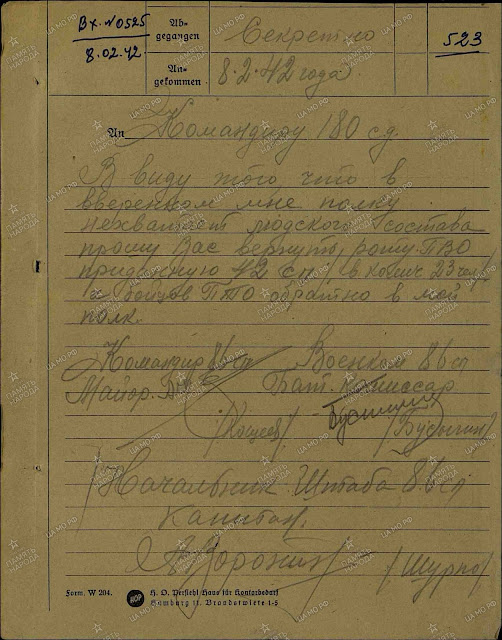 Вх. №0525
8.02.42
Ab-
gegangen
Секретно
523
An-
gekommen
8.2.42 года.
An
Командиру 180 сд.
В виду того что в
вверенном мне полку
нехватает людского состава
прошу Вас вернуть роту ПВО
приданную 42 сп, в колич 23 чел
и бойцов ПТО обратно в мой
полк.
Командир 86 сп Военком 86 сп
Майор. Бат. Комиссар
/Кощеев/ /Бусыгин/
Начальник Штаба 86 сп
Капитан.
Form. W 204.
H. O. Persiehl, Haus für Kontorbedarf
Hamburg 11, Brodschrangen 1-5
ПАМЯТЬ НАРОДА
ЦА МО РФ